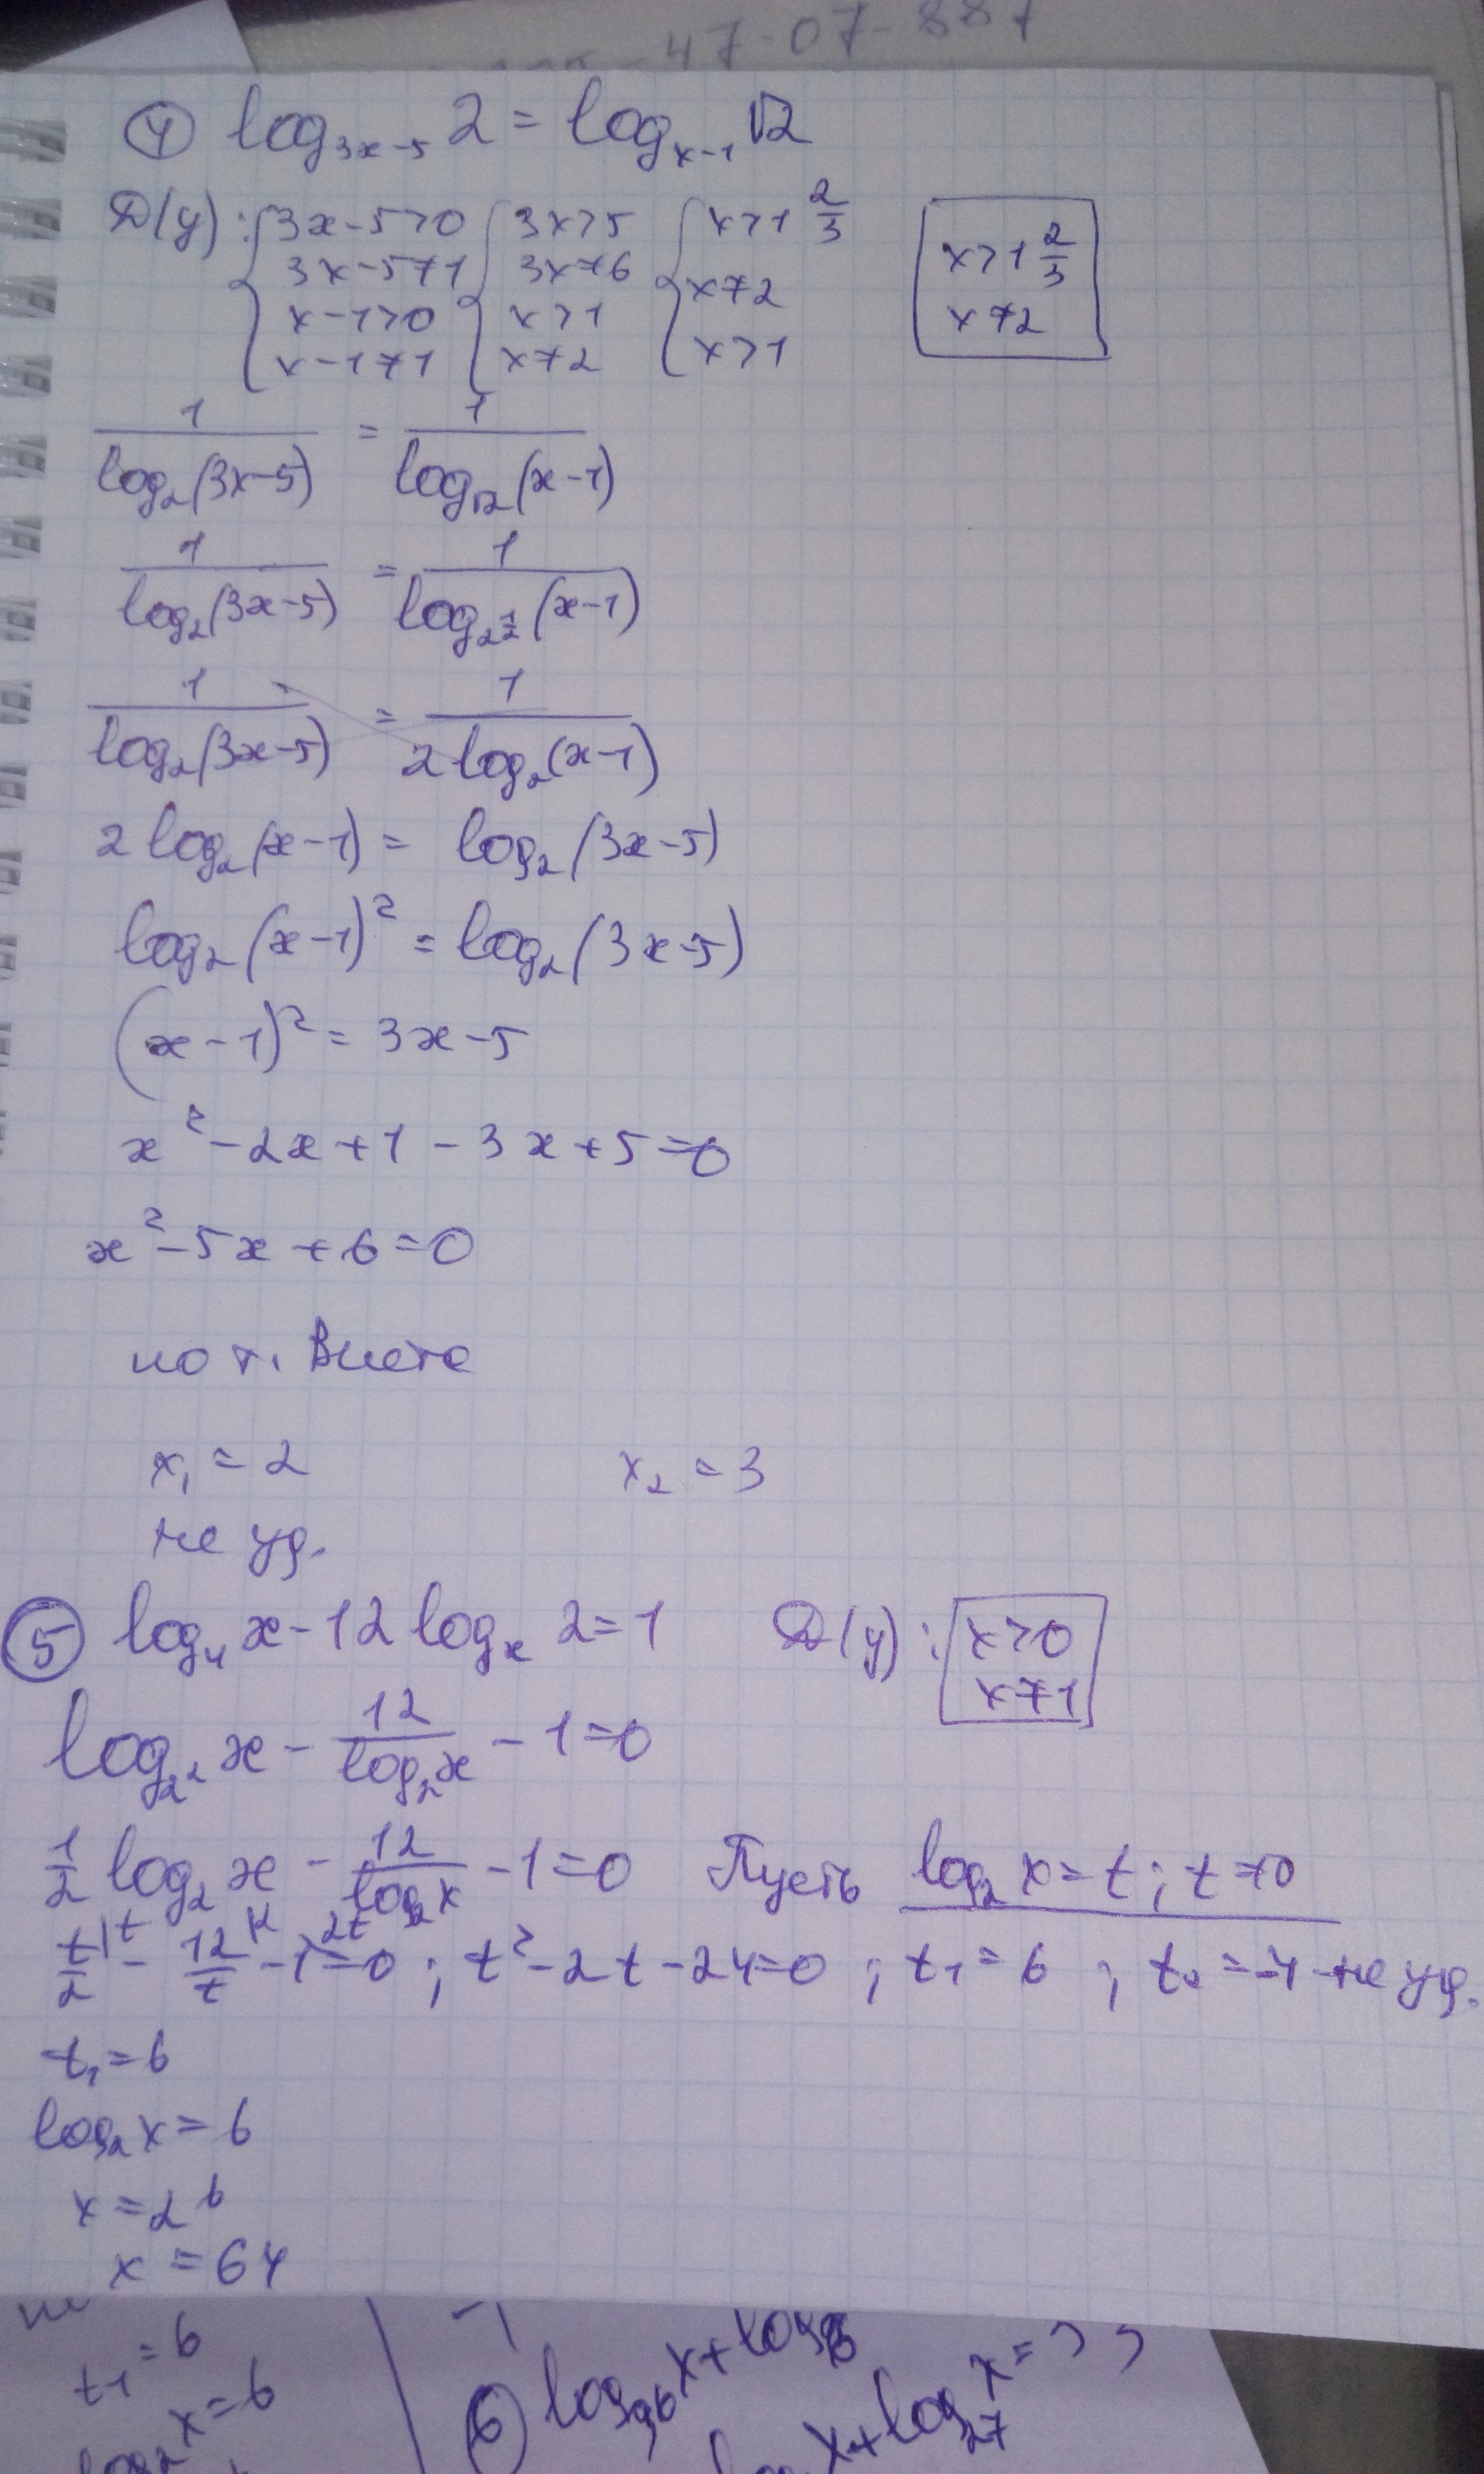 47-07-887
④ log₃ₓ₋₅ 2 = logₓ₋₁ √2
D(y): { 3x-5>0 { 3x>5 { x>1 2/3 x>1 2/3
3x-5≠1 3x≠6 x≠2 x≠2
x-1>0 x>1 x>1
x-1≠1 x≠2
1/log₂(3x-5) = 1/log_√2(x-1)
1/log₂(3x-5) = 1/log_2^(1/2)(x-1)
1/log₂(3x-5) = 1/2log₂(x-1)
2log₂(x-1) = log₂(3x-5)
log₂(x-1)² = log₂(3x-5)
(x-1)² = 3x-5
x²-2x+1-3x+5=0
x²-5x+6=0
по т. Виета
x₁=2 x₂=3
не уд.
⑤ log₄x-12logₓ2=1 D(y): x>0
x≠1
log_2²x - 12/log₂x - 1=0
1/2 log₂x - 12/log₂x - 1=0 Пусть log₂x=t; t≠0
t/2 |t - 12/t - 1 |2t =0; t²-2t-24=0; t₁=6; t₂=-4 не уд.
t₁=6
log₂x=6
x=2⁶
x=64
t₁=6
log₂x=6
-1
⑥ x+log
x+log₂₇x=